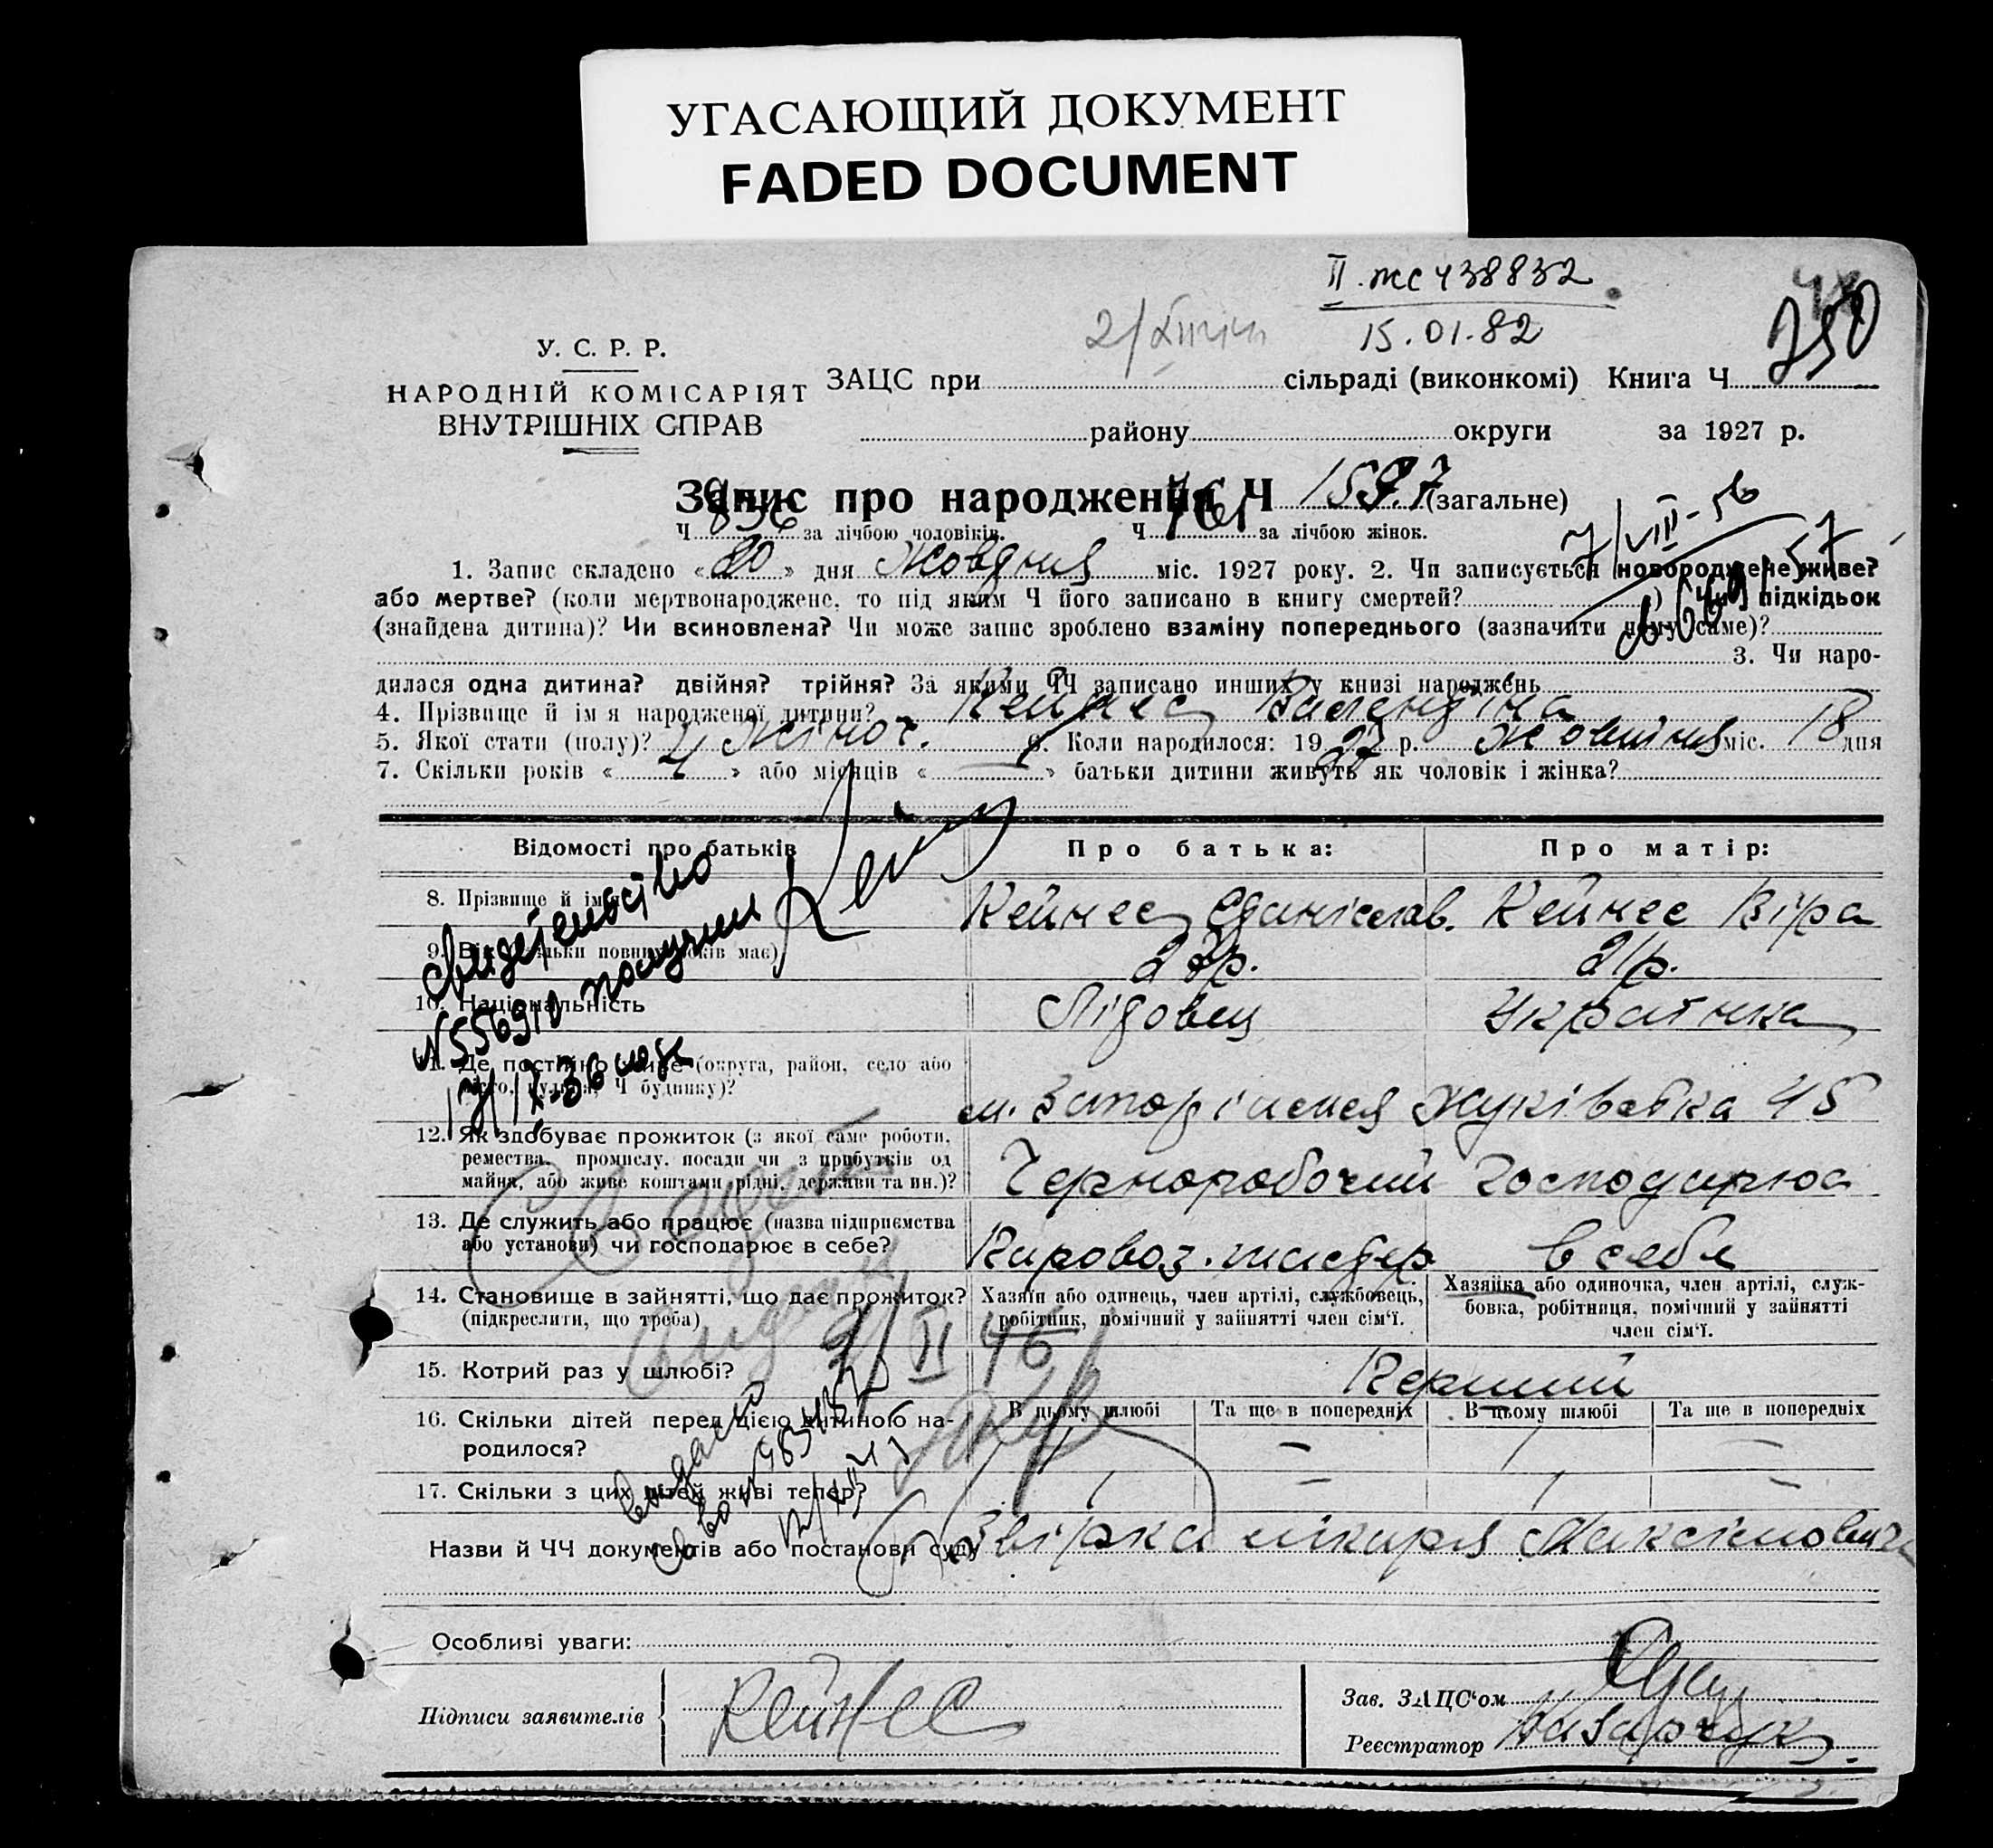 УГАСАЮЩИЙ ДОКУМЕНТ
FADED DOCUMENT
II-ЖС 438832
15.01.82
250
У. С. Р. Р.
НАРОДНІЙ КОМІСАРІЯТ
ВНУТРІШНІХ СПРАВ
ЗАЦС при сільраді (виконкомі) Книга Ч
району округи за 1927 р.
Запис про народження Ч 1597 (загальне)
Ч 836 за лічбою чоловіків. Ч 761 за лічбою жінок.
7/VIII-56
1. Запис складено «20» дня Жовтня міс. 1927 року. 2. Чи записується новороджене живе?
або мертве? (коли мертвонароджене, то під яким Ч його записано в книгу смертей? ) Чи підкідьок
(знайдена дитина)? Чи всиновлена? Чи може запис зроблено взаміну попереднього (зазначити чому саме)?
3. Чи наро-
дилася одна дитина? двійня? трійня? За якими ЧЧ записано инших у книзі народжень
4. Прізвище й ім я народженої дитини? Кейнес Валентіна
5. Якої стати (полу)? Жіноч. 6. Коли народилося: 1927 р. Жовтня міс. 18 дня
7. Скільки років «4» або місяців «—» батьки дитини живуть як чоловік і жінка?
Відомості про батьків Про батька: Про матір:
8. Прізвище й ім'я Кейнес Станіслав. Кейнес Віра
9. Вік (скільки повних років має) 27р. 21р.
10. Національність Літовец Українка
11. Де постійно живе (округа, район, село або
місто, вулиця, Ч будинку)?
м. Запоріжжя Жуківська 45
12. Як здобуває прожиток (з якої саме роботи,
ремества, промислу, посади чи з прибутків од
майна, або живе коштами рідні, держави та ин.)?
Черноробочий Господарює
13. Де служить або працює (назва підприємства
або установи) чи господарює в себе?
Паровоз. мастер в себе
14. Становище в зайнятті, що дає прожиток?
(підкреслити, що треба)
Хазяїн або одинець, член артілі, службовець,
робітник, помічний у зайнятті член сім'ї.
Хазяйка або одиночка, член артілі, служ-
бовка, робітниця, помічний у зайнятті
член сім'ї.
15. Котрий раз у шлюбі? Перший
16. Скільки дітей перед цією дитиною на-
родилося?
В цьому шлюбі Та ще в попередніх В цьому шлюбі Та ще в попередніх
1 — 1 —
17. Скільки з цих дітей живі тепер? 1 — 1 —
Назви й ЧЧ документів або постанови суду Звірка лікаря Максімовича
Особливі уваги:
Підписи заявителів Кейнес
Зав. ЗАЦС'ом
Реєстратор Назарчук
Свидетельство
N 556910 получил